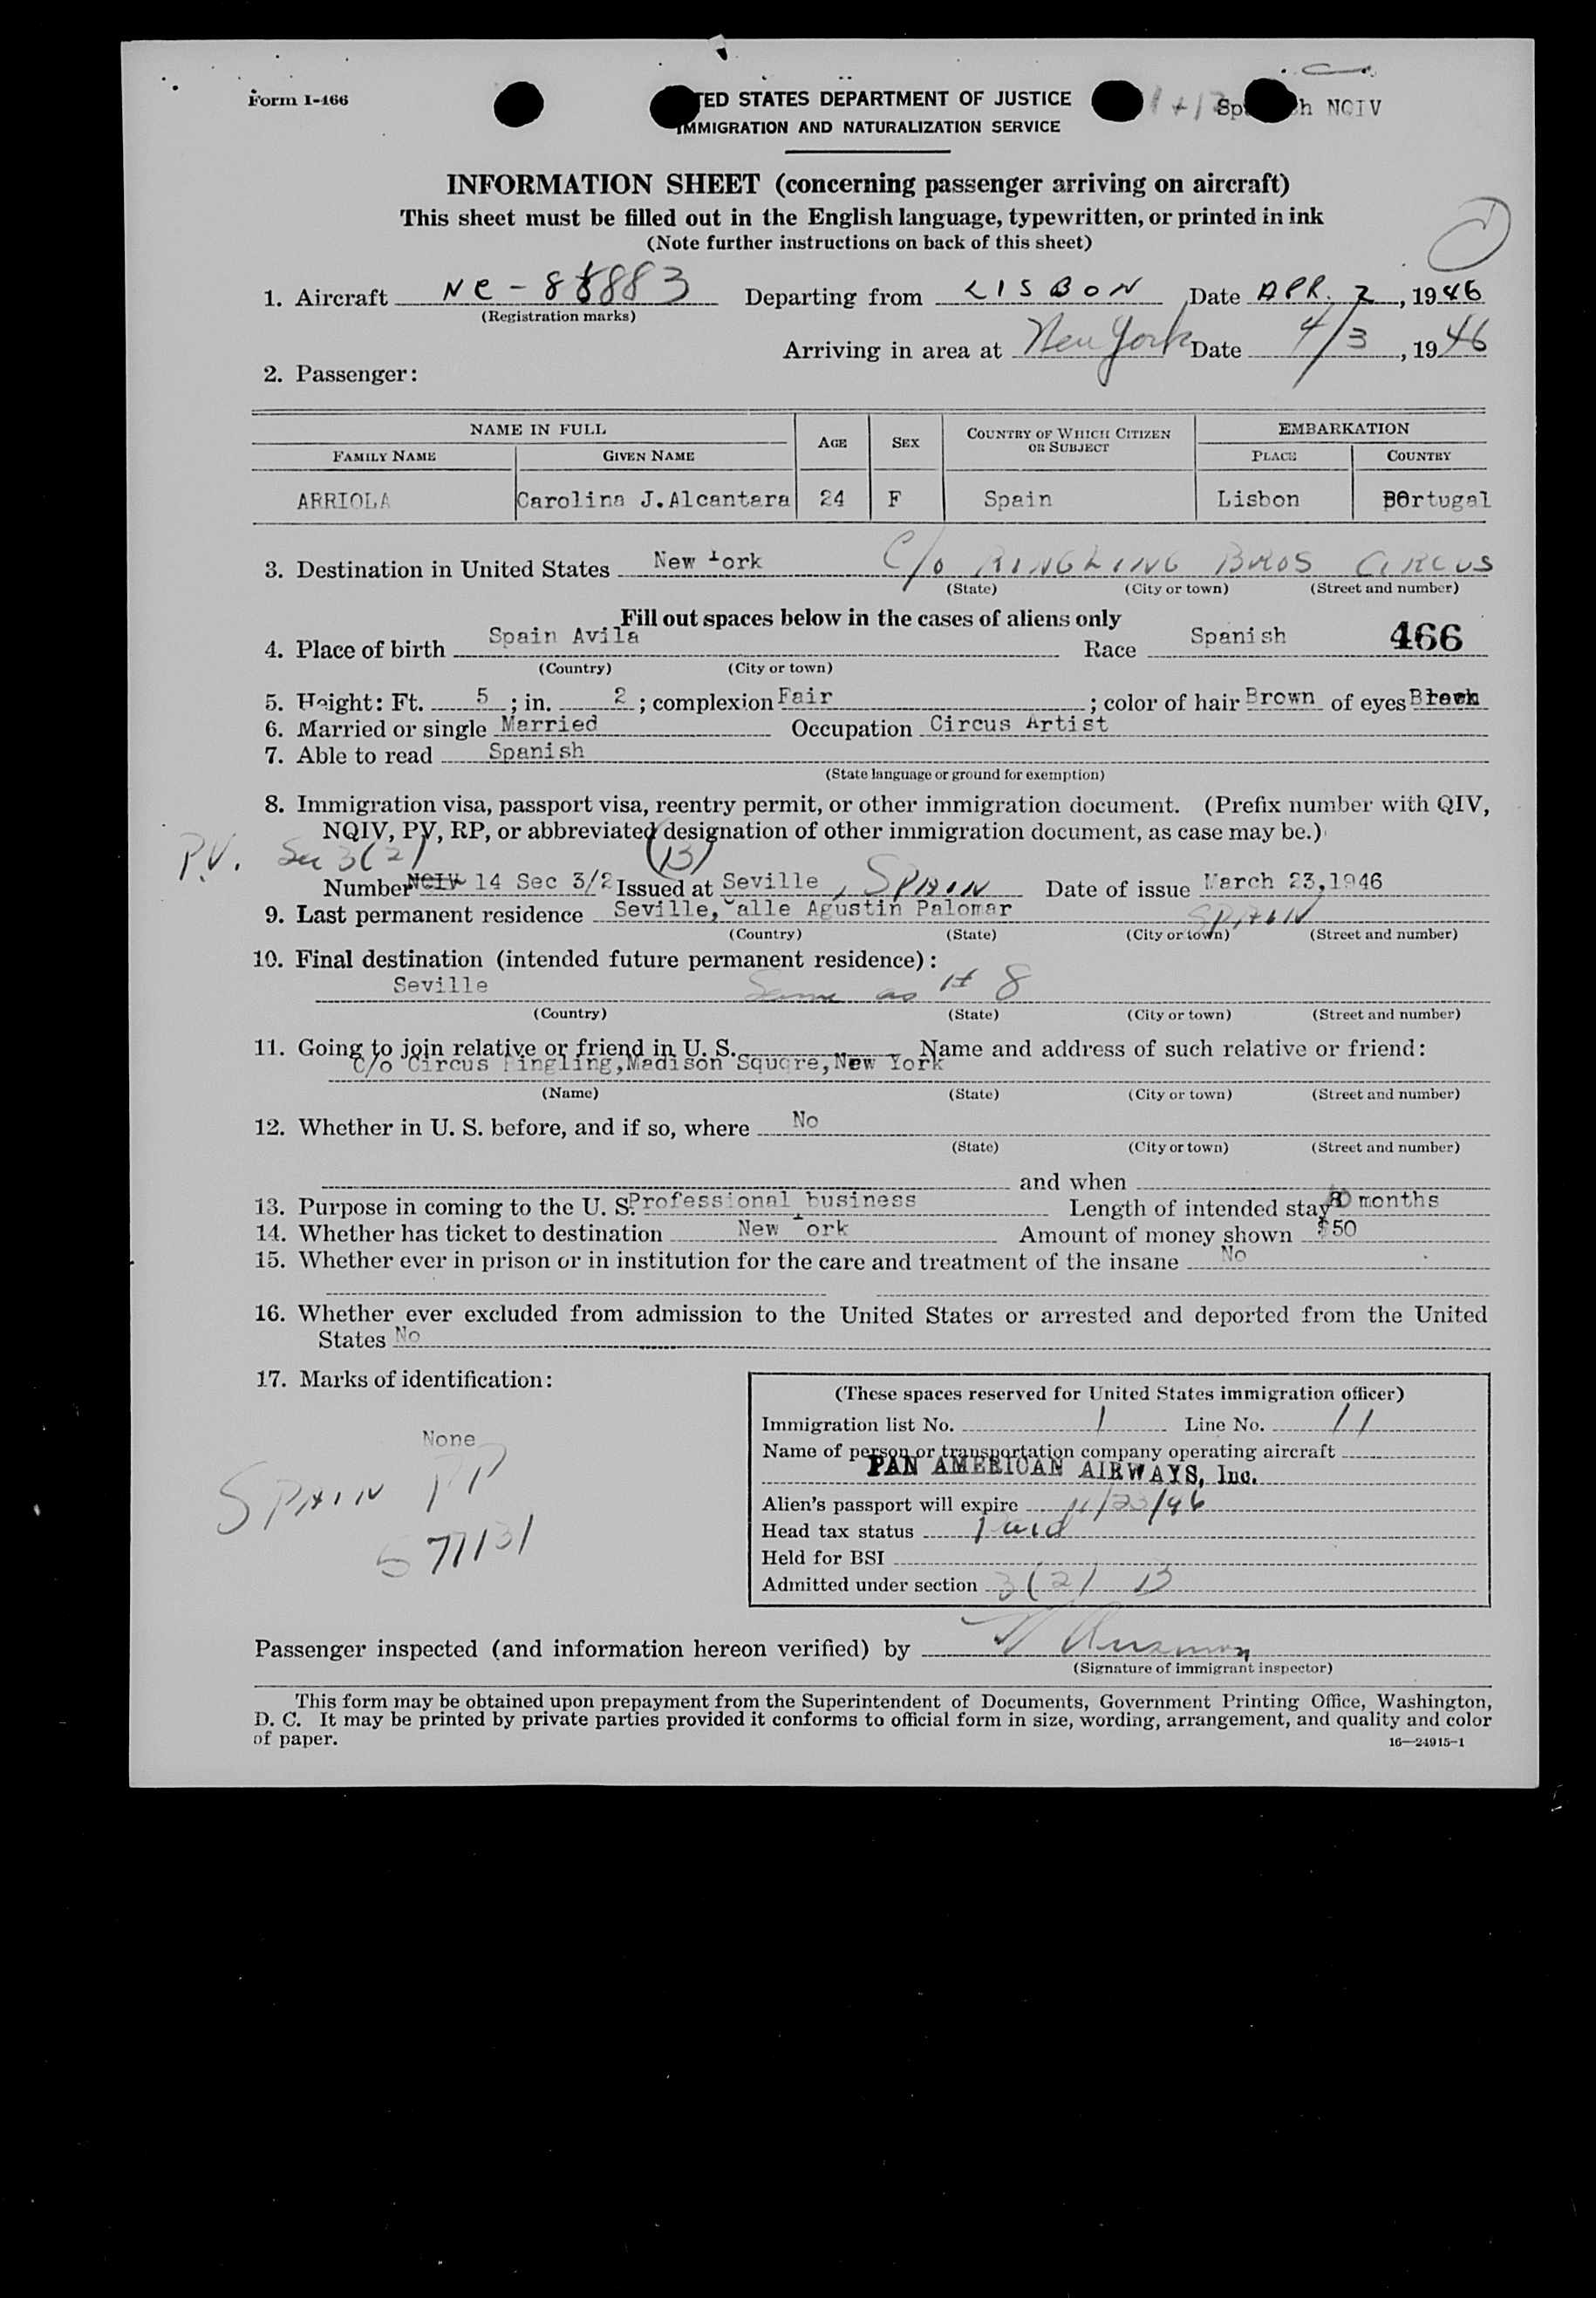 Form I-466
TED STATES DEPARTMENT OF JUSTICE
IMMIGRATION AND NATURALIZATION SERVICE
Sp h NQIV
INFORMATION SHEET (concerning passenger arriving on aircraft)
This sheet must be filled out in the English language, typewritten, or printed in ink
(Note further instructions on back of this sheet)
1. Aircraft NC-88883 Departing from LISBON Date APR. 2, 1946
(Registration marks)
Arriving in area at New York Date 4/3, 1946
2. Passenger:
NAME IN FULL AGE SEX COUNTRY OF WHICH CITIZEN OR SUBJECT EMBARKATION
FAMILY NAME GIVEN NAME PLACE COUNTRY
ARRIOLA Carolina J.Alcantara 24 F Spain Lisbon POrtugal
3. Destination in United States New York C/o RINGLING BROS CIRCUS
(State) (City or town) (Street and number)
Fill out spaces below in the cases of aliens only
4. Place of birth Spain Avila Race Spanish 466
(Country) (City or town)
5. Height: Ft. 5; in. 2; complexion Fair; color of hair Brown of eyes
6. Married or single Married Occupation Circus Artist
7. Able to read Spanish
(State language or ground for exemption)
8. Immigration visa, passport visa, reentry permit, or other immigration document. (Prefix number with QIV,
NQIV, PV, RP, or abbreviated designation of other immigration document, as case may be.)
P.V. Sec 3(2) (13)
Number NQIV 14 Sec 3/2 Issued at Seville, SPAIN Date of issue March 23,1946
9. Last permanent residence Seville, Calle Agustin Palomar SPAIN
(Country) (State) (City or town) (Street and number)
10. Final destination (intended future permanent residence):
Seville Same as # 8
(Country) (State) (City or town) (Street and number)
11. Going to join relative or friend in U. S. Name and address of such relative or friend:
C/o Circus Ringling,Madison Square,New York
(Name) (State) (City or town) (Street and number)
12. Whether in U. S. before, and if so, where No
(State) (City or town) (Street and number)
and when
13. Purpose in coming to the U. S. Professional business Length of intended stay months
14. Whether has ticket to destination New York Amount of money shown $50
15. Whether ever in prison or in institution for the care and treatment of the insane No
16. Whether ever excluded from admission to the United States or arrested and deported from the United
States No
17. Marks of identification:
None
SPAIN PP
577131
(These spaces reserved for United States immigration officer)
Immigration list No. 1 Line No. 11
Name of person or transportation company operating aircraft
PAN AMERICAN AIRWAYS, Inc.
Alien's passport will expire 11/23/46
Head tax status Paid
Held for BSI
Admitted under section 3(2) 13
Passenger inspected (and information hereon verified) by
(Signature of immigrant inspector)
This form may be obtained upon prepayment from the Superintendent of Documents, Government Printing Office, Washington,
D. C. It may be printed by private parties provided it conforms to official form in size, wording, arrangement, and quality and color
of paper.
16—24915-1